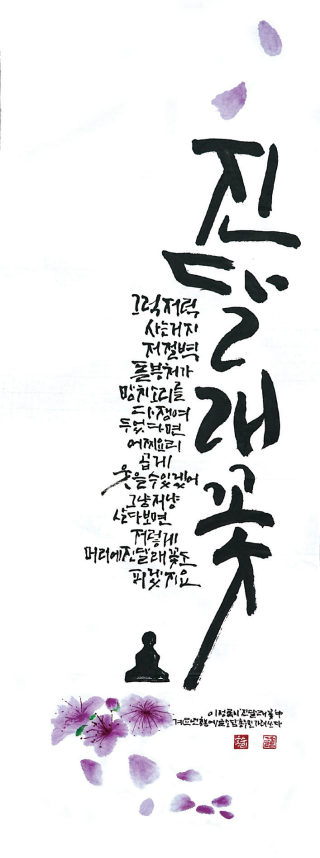 진달래꽃
그럭저럭
사는거지
저절벽
돌부처가
망치소리를
다쟁여
두었다면
어찌요리
곱게
웃을수있겠어
그냥저냥
살다보면
저렇게
머리에진달래꽃도
피겠지요
이정록시 진달래꽃中